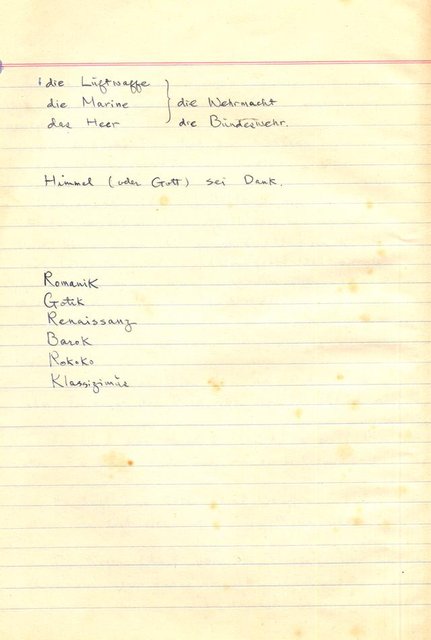 die Luftwaffe
die Marine } die Wehrmacht
das Heer } die Bundeswehr.
Himmel (oder Gott) sei Dank.
Romanik
Gotik
Renaissanz
Barok
Rokoko